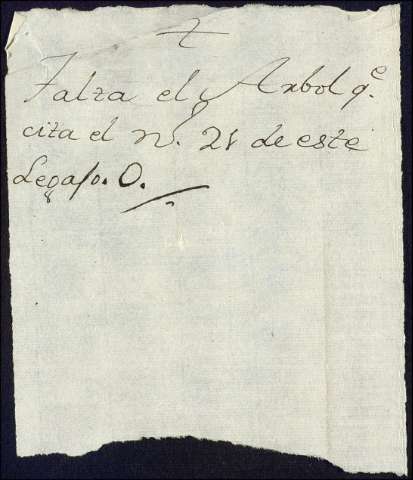 Falta el Arbol q.e
cita el n. 21 de este
Legajo. O.